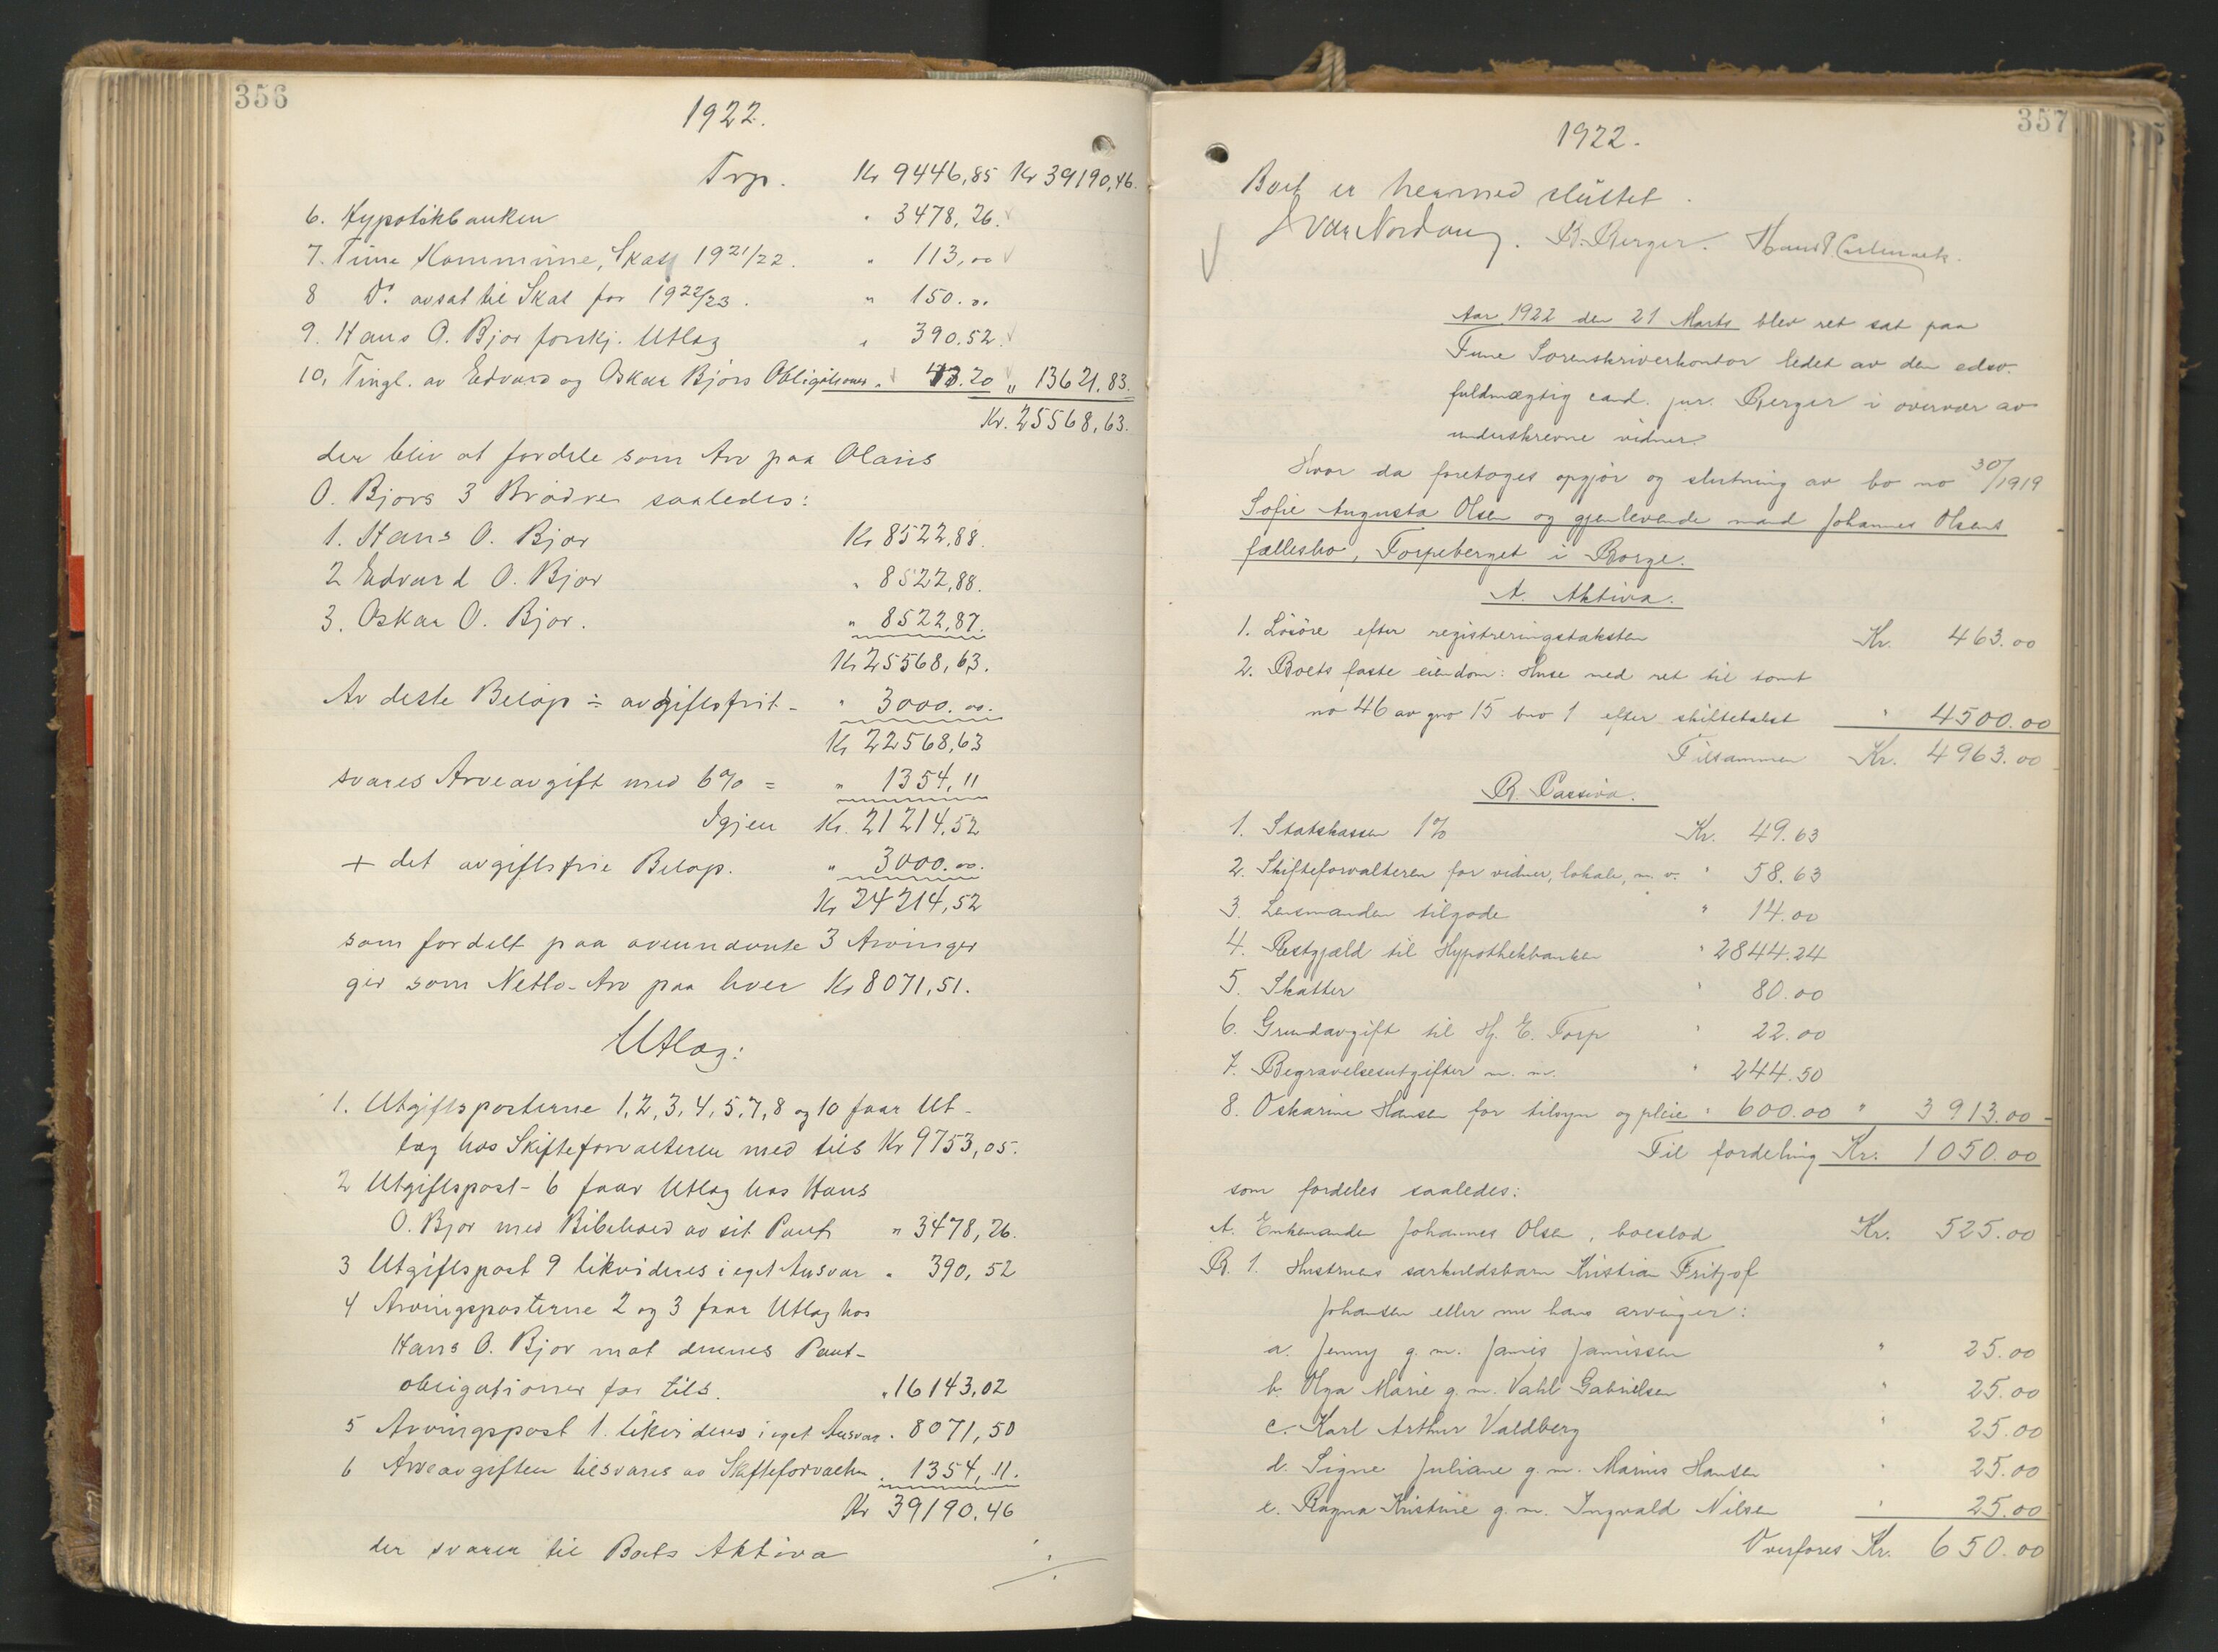 356
1922.
Trp. Kr 9446,85 Kr 39190,46.
6. Hypotekbanken " 3478,26.
7. Tune Kommune, Skat 1921/22. " 113,00
8 Do. avsat til Skat for 1922/23. " 150.00
9. Hans O. Bjor forskj. Utlæg " 390.52.
10. Tingl. av Edvard og Oskar Bjors Obligationer " 43.20 " 13621.83.
Kr. 25568,63.
der bliv at fordele som Arv paa Olaus
O. Bjors 3 Brödre saaledes:
1. Hans O. Bjor Kr 8522,88.
2 Edvard O. Bjor " 8522,88.
3. Oskar O. Bjor. " 8522,87.
Kr 25568,63.
Av dette Belöp ÷ avgiftsfrit - " 3000.00.
Kr 22568,63
svares Arveavgift med 6% = " 1354,11
Igjen Kr. 21214,52
+ det avgiftsfrie Belöp. " 3000.00.
Kr 24214,52
som fordelt paa ovennævnte 3 Arvinger
gir som Netto-Arv paa hver Kr 8071,51.
Utlæg:
1. Utgiftsposterne 1,2,3,4,5,7,8 og 10 faar Ut-
læg hos Skifteforvalteren med tils Kr 9753,05.
2 Utgiftspost - 6 faar Utlæg hos Hans
O. Bjor med Bibehold av sit Pant " 3478,26.
3 Utgiftspost 9 likvideres i eget Ansvar " 390,52
4 Arvingsposterne 2 og 3 faar Utlæg hos
Hans O. Bjor mot dennes Pant-
obligationer for tils. " 16143,02
5 Arvingspost 1. likvideres i eget Ansvar " 8071,50
6 Arveavgiften tilsvares av Skifteforvalter " 1354,11.
Kr 39190.46
der svarer til Boets Aktiva
357
1922.
Boet er hermed sluttet.
Ivar Nordang. B. Berger.
Aar 1922 den 21 Marts blev ret sat paa
Tune Sorenskriverkontor ledet av den edsv.
fuldmægtig cand. jur. Berger i overvær av
underskrevne vidner.
Hvor da foretoges opgjör og slutning av bo no 30/1919
Sofie Augusta Olsen og gjenlevende mand Johannes Olsens
fællesbo, Torpeberget i Borge.
A. Aktiva.
1. Lösöre efter registreringstaksten Kr. 463.00
2. Boets faste eiendom: Huse med ret til tomt
no 46 av gno 15 bno 1 efter skiftetakst " 4500.00
Tilsammen Kr. 4963.00
B. Passiva.
1. Statskassen 1% Kr. 49.63
2. Skifteforvalteren for vidner, lokale, m. v. " 58.63
3. Lensmanden tilgode " 14.00
4. Restgjæld til Hypothekbanken " 2844.24
5. Skatter " 80.00
6. Grundavgift til Hj. E. Torp " 22.00
7. Begravelsesutgifter m. m. " 244.50
8. Oskarine Hansen for tilsyn og pleie " 600.00 " 3913.00
Til fordeling Kr. 1050.00
som fordeles saaledes:
A. Enkemanden Johannes Olsen, boeslod Kr. 525.00
B. 1. Hustruens særkuldsbarn Kristian Fritjof
Johansen eller nu hans arvinger:
a. Jenny g. m. Janis Jamissen " 25.00
b. Olga Marie g. m. Vahl Gabrielsen " 25.00
c. Karl Arthur Valdberg " 25.00
d. Signe Juliane g. m. Marius Hansen " 25.00
e. Ragna Kristine g. m. Ingvald Nilsen " 25.00
Overföres Kr. 650.00